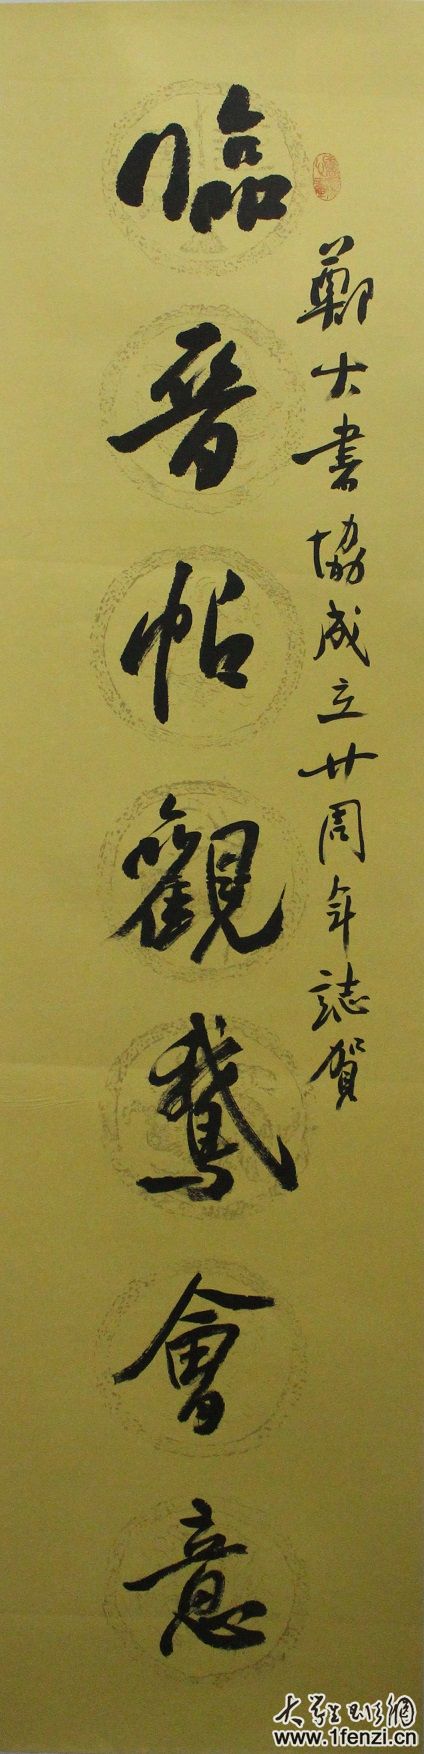 鄭大書協成立廿周年誌賀
臨晉帖觀鵞會意
大學生
www.1fenzi.cn